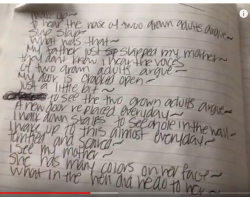 to hear the noise of two grown adults argue~
She slap~
What was that~
My father just slapped my mother~
that don't know I hear the voices
of two grown adults argue~
My door is cracked open~
Just a little bit~
to see the two grown adults argue~
A new door replaced everyday~
I walk down stairs to see a hole in the wall~
I wake up to this almost everyday~
and scared~
I see my mother~
She has many colors on her face~
What in the hell did he do to her~